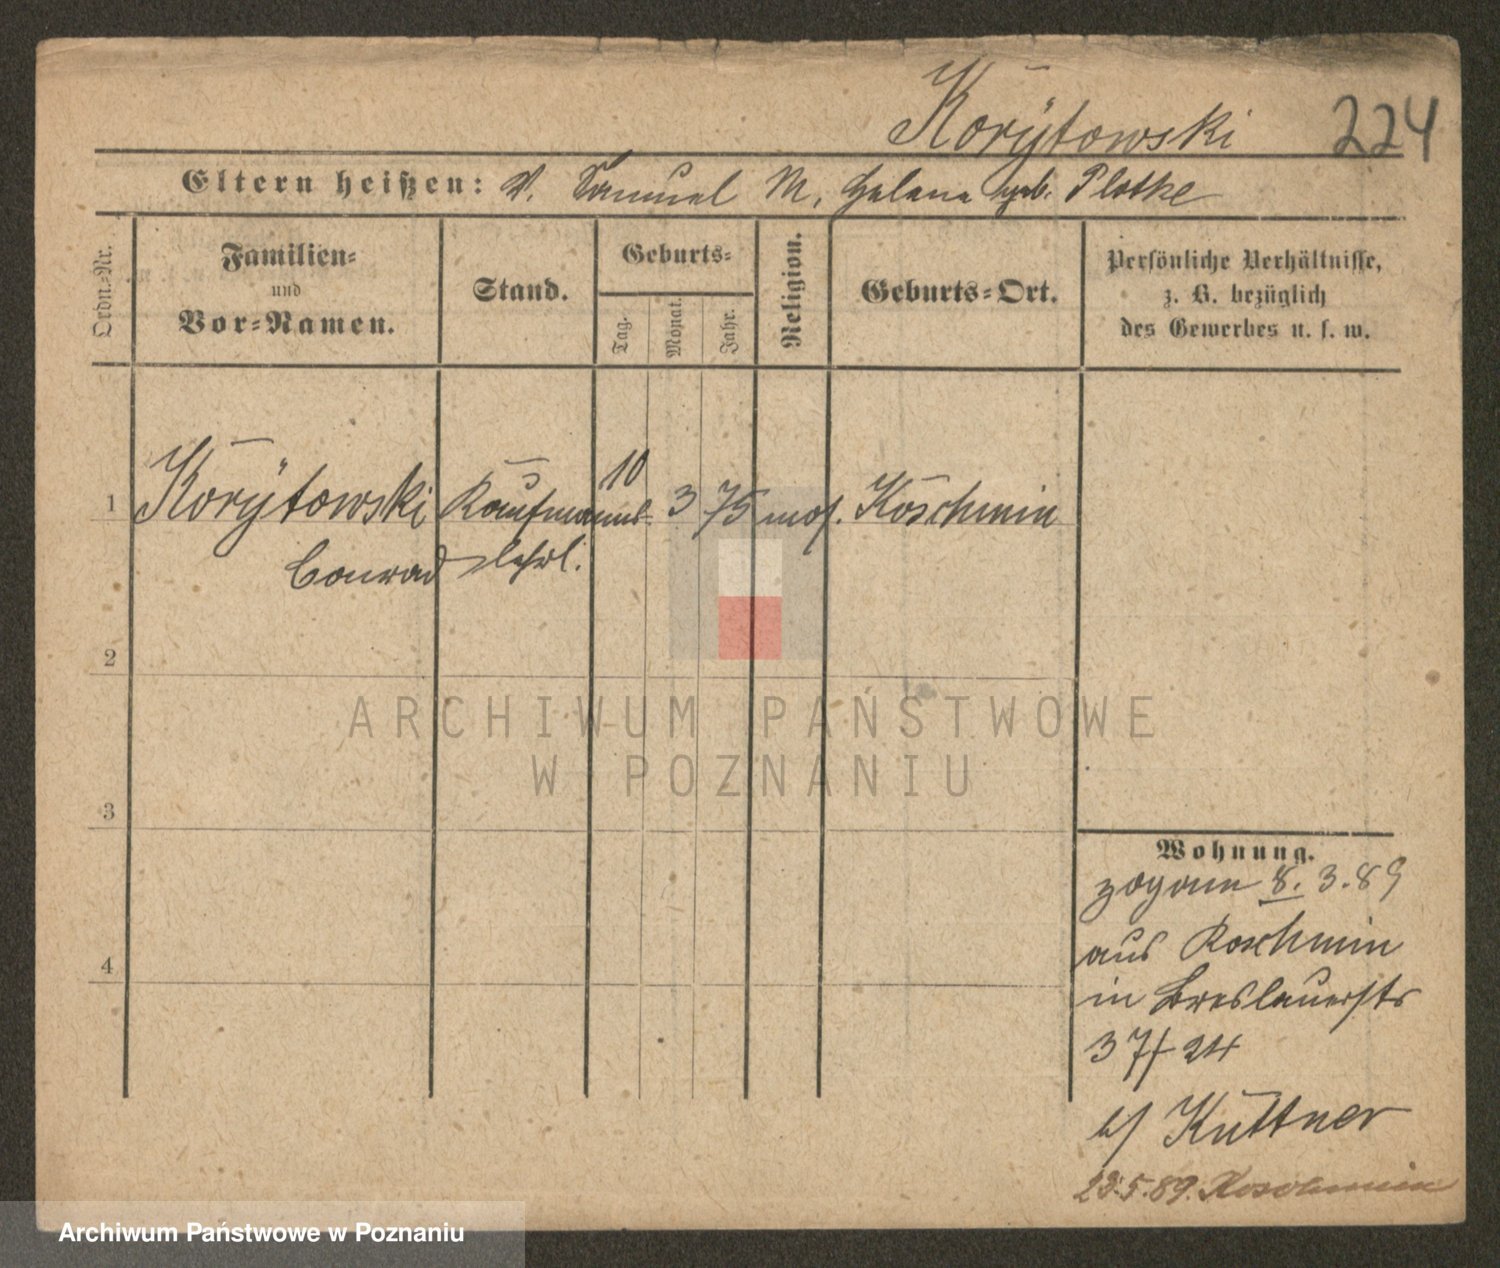 Korÿtowski 224
Eltern heißen: V. Samuel M. Helene geb. Plotke
Ordn.-Nr.
Familien-
und
Vor-Namen.
Stand.
Geburts-
Tag.
Monat.
Jahr.
Religion.
Geburts-Ort.
Persönliche Verhältnisse,
z. B. bezüglich
des Gewerbes u. s. w.
1 Korÿtowski Kaufmanns- 10 3 75 mos. Koschmin
Conrad lehrl.
2
ARCHIWUM PAŃSTWOWE
W POZNANIU
3
Wohnung.
zogann 8. 3. 89
aus Koschmin
4
in Breslauerstr
37/24
b/ Kuttner
23.5.89. Koschmin
Archiwum Państwowe w Poznaniu